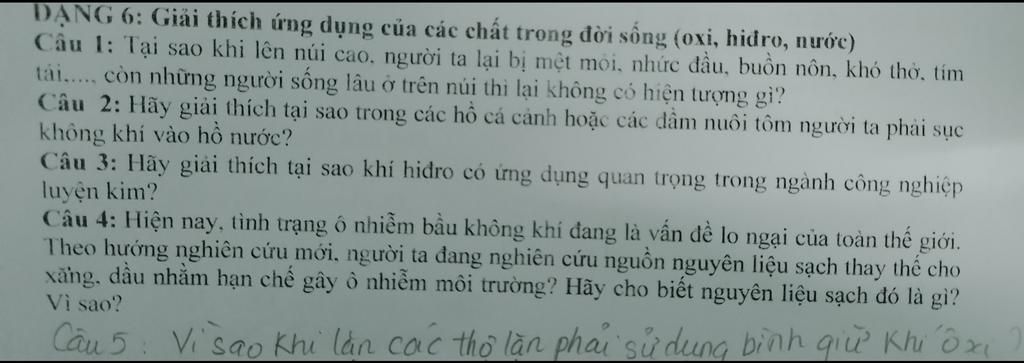 DẠNG 6: Giải thích ứng dụng của các chất trong đời sống (oxi, hiđro, nước)
Câu 1: Tại sao khi lên núi cao, người ta lại bị mệt mỏi, nhức đầu, buồn nôn, khó thở, tím
tái..... còn những người sống lâu ở trên núi thì lại không có hiện tượng gì?
Câu 2: Hãy giải thích tại sao trong các hồ cá cảnh hoặc các đầm nuôi tôm người ta phải sục
không khí vào hồ nước?
Câu 3: Hãy giải thích tại sao khí hiđro có ứng dụng quan trọng trong ngành công nghiệp
luyện kim?
Câu 4: Hiện nay, tình trạng ô nhiễm bầu không khí đang là vấn đề lo ngại của toàn thế giới.
Theo hướng nghiên cứu mới, người ta đang nghiên cứu nguồn nguyên liệu sạch thay thế cho
xăng, dầu nhằm hạn chế gây ô nhiễm môi trường? Hãy cho biết nguyên liệu sạch đó là gì?
Vì sao?
Câu 5: Vì sao khi lặn các thợ lặn phải sử dụng bình giữ khí ôxi ?